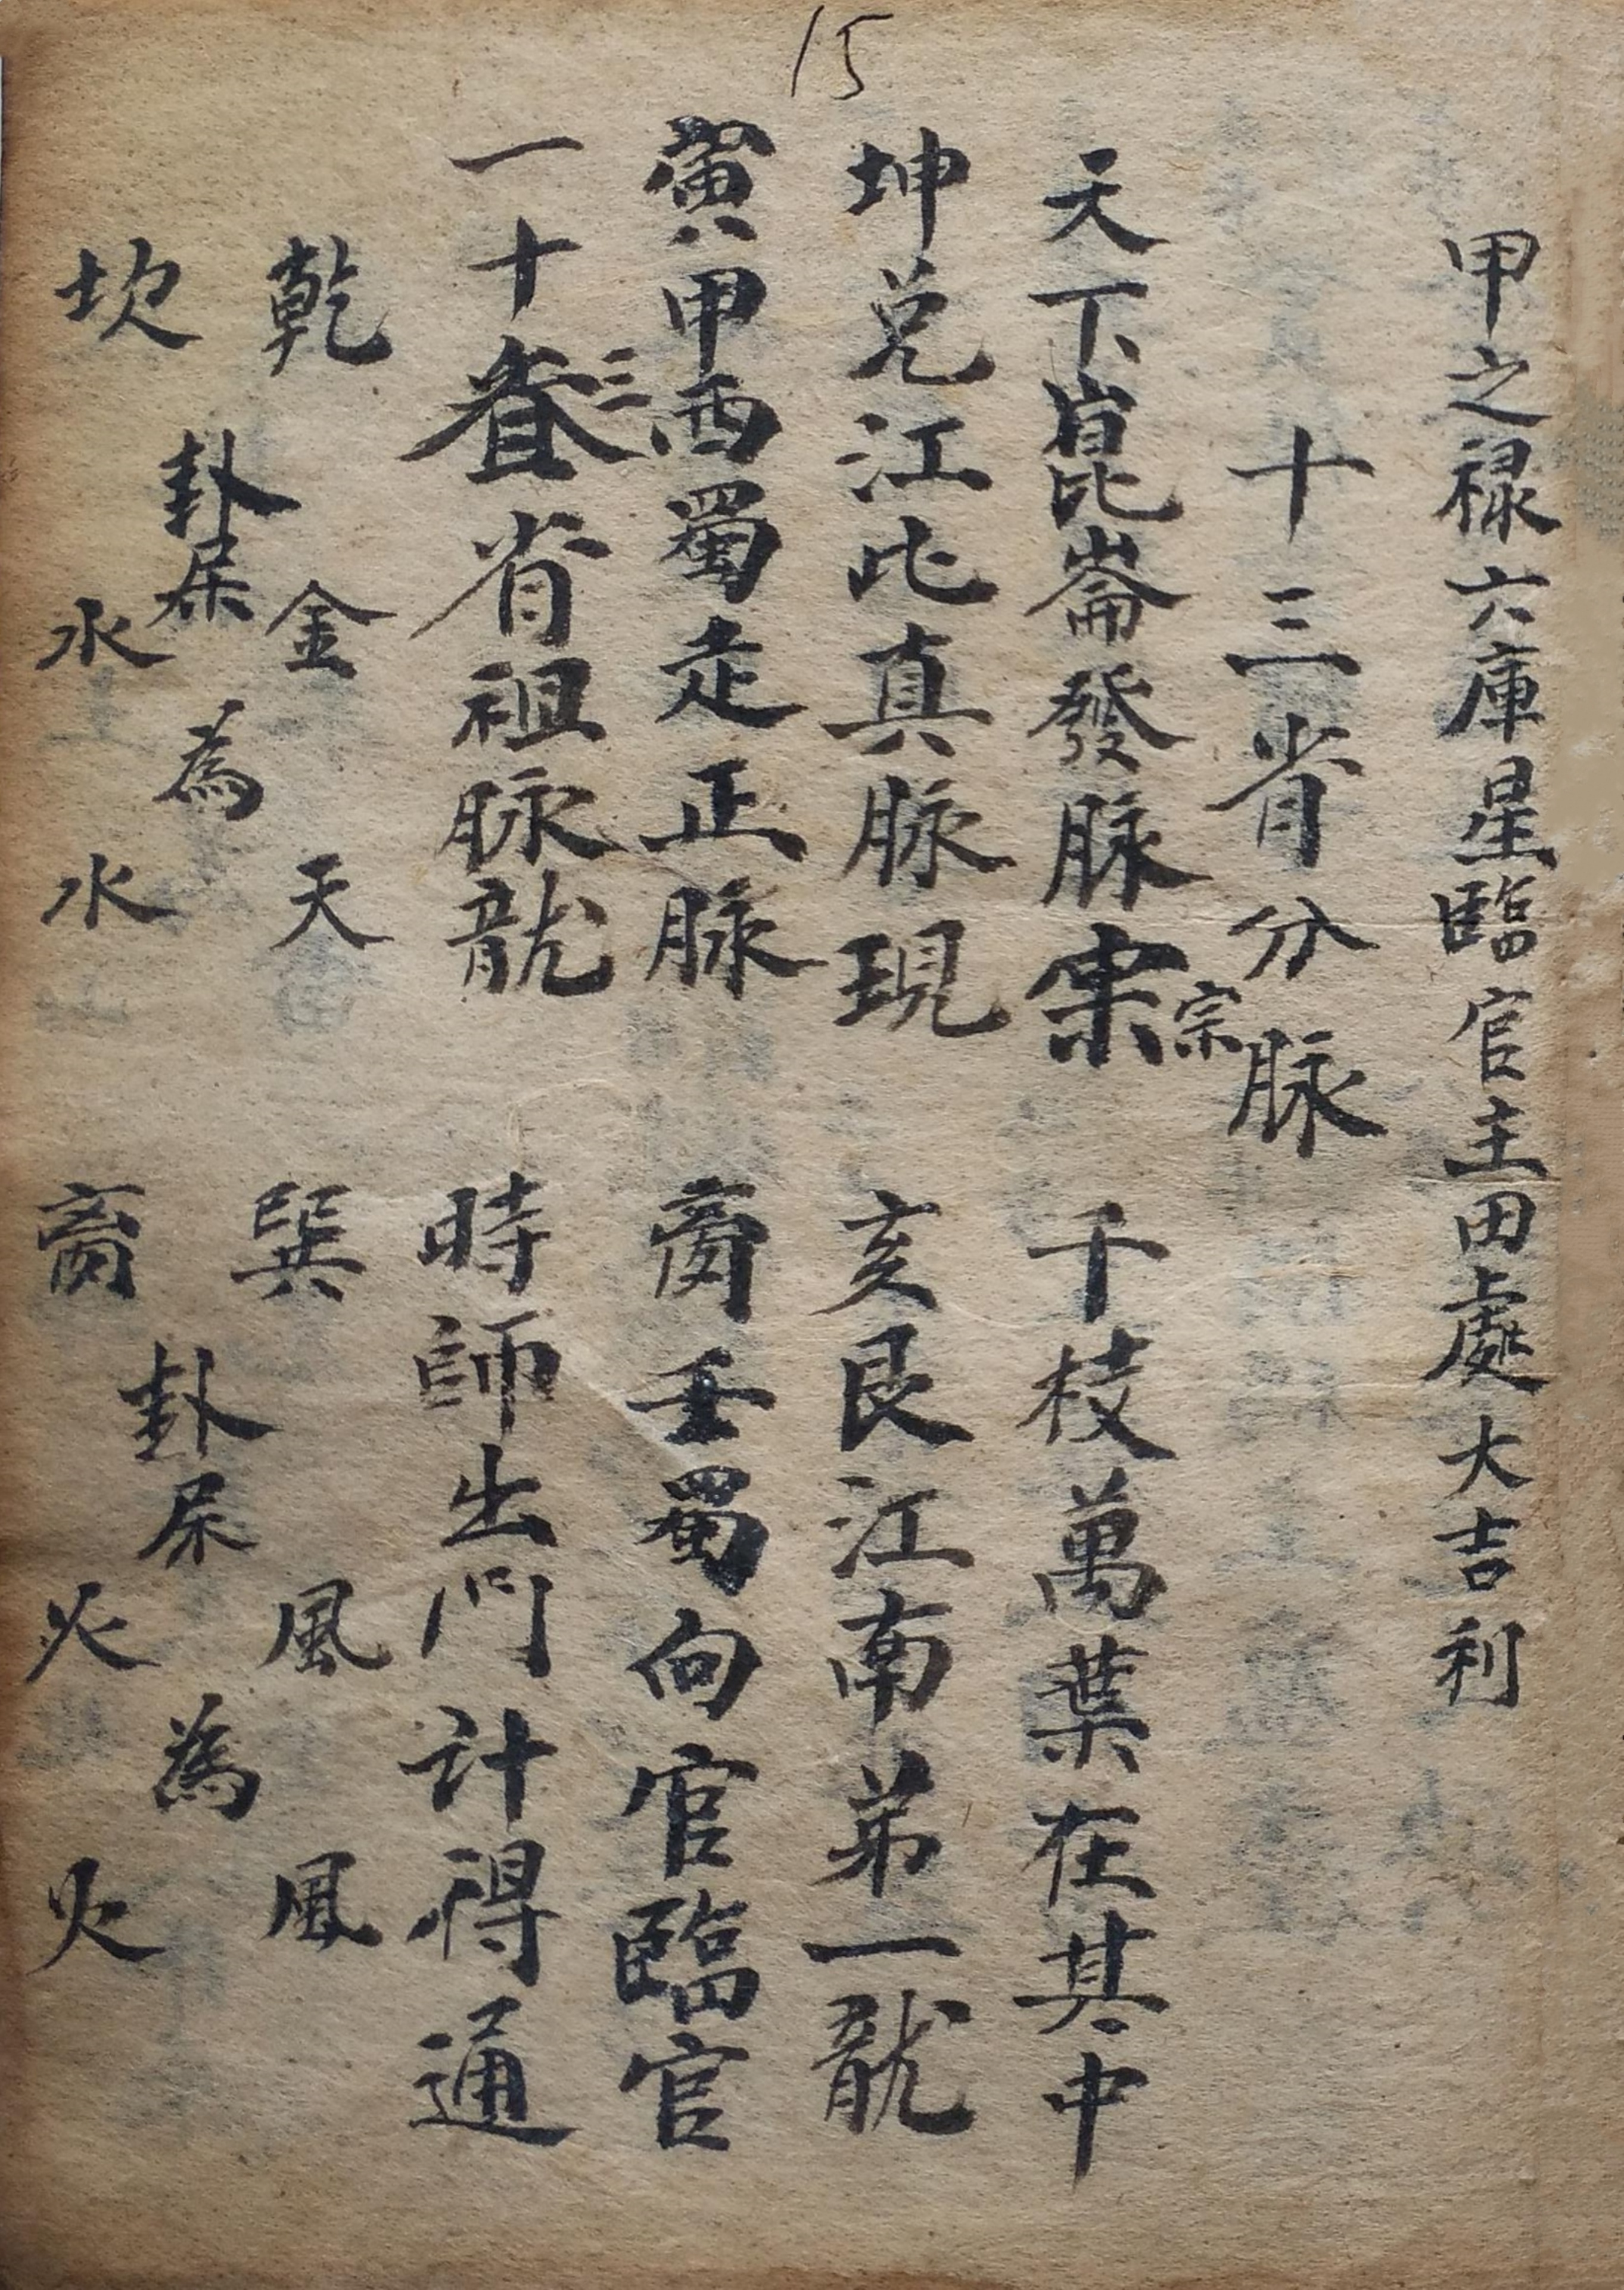 15
甲之禄六庫星臨官主田處大吉利
十三省分脉
天下崑崙發脉宗 千枝萬葉在其中
宗
坤兑江北真脉現 亥艮江南弟一龍
寅甲西蜀走正脉 离壬蜀向官臨官
一十省祖脉龍 時師出門計得通
三
乾 金 天 巽 風 風
卦 為 卦 為
坎 水 水 离 火 火